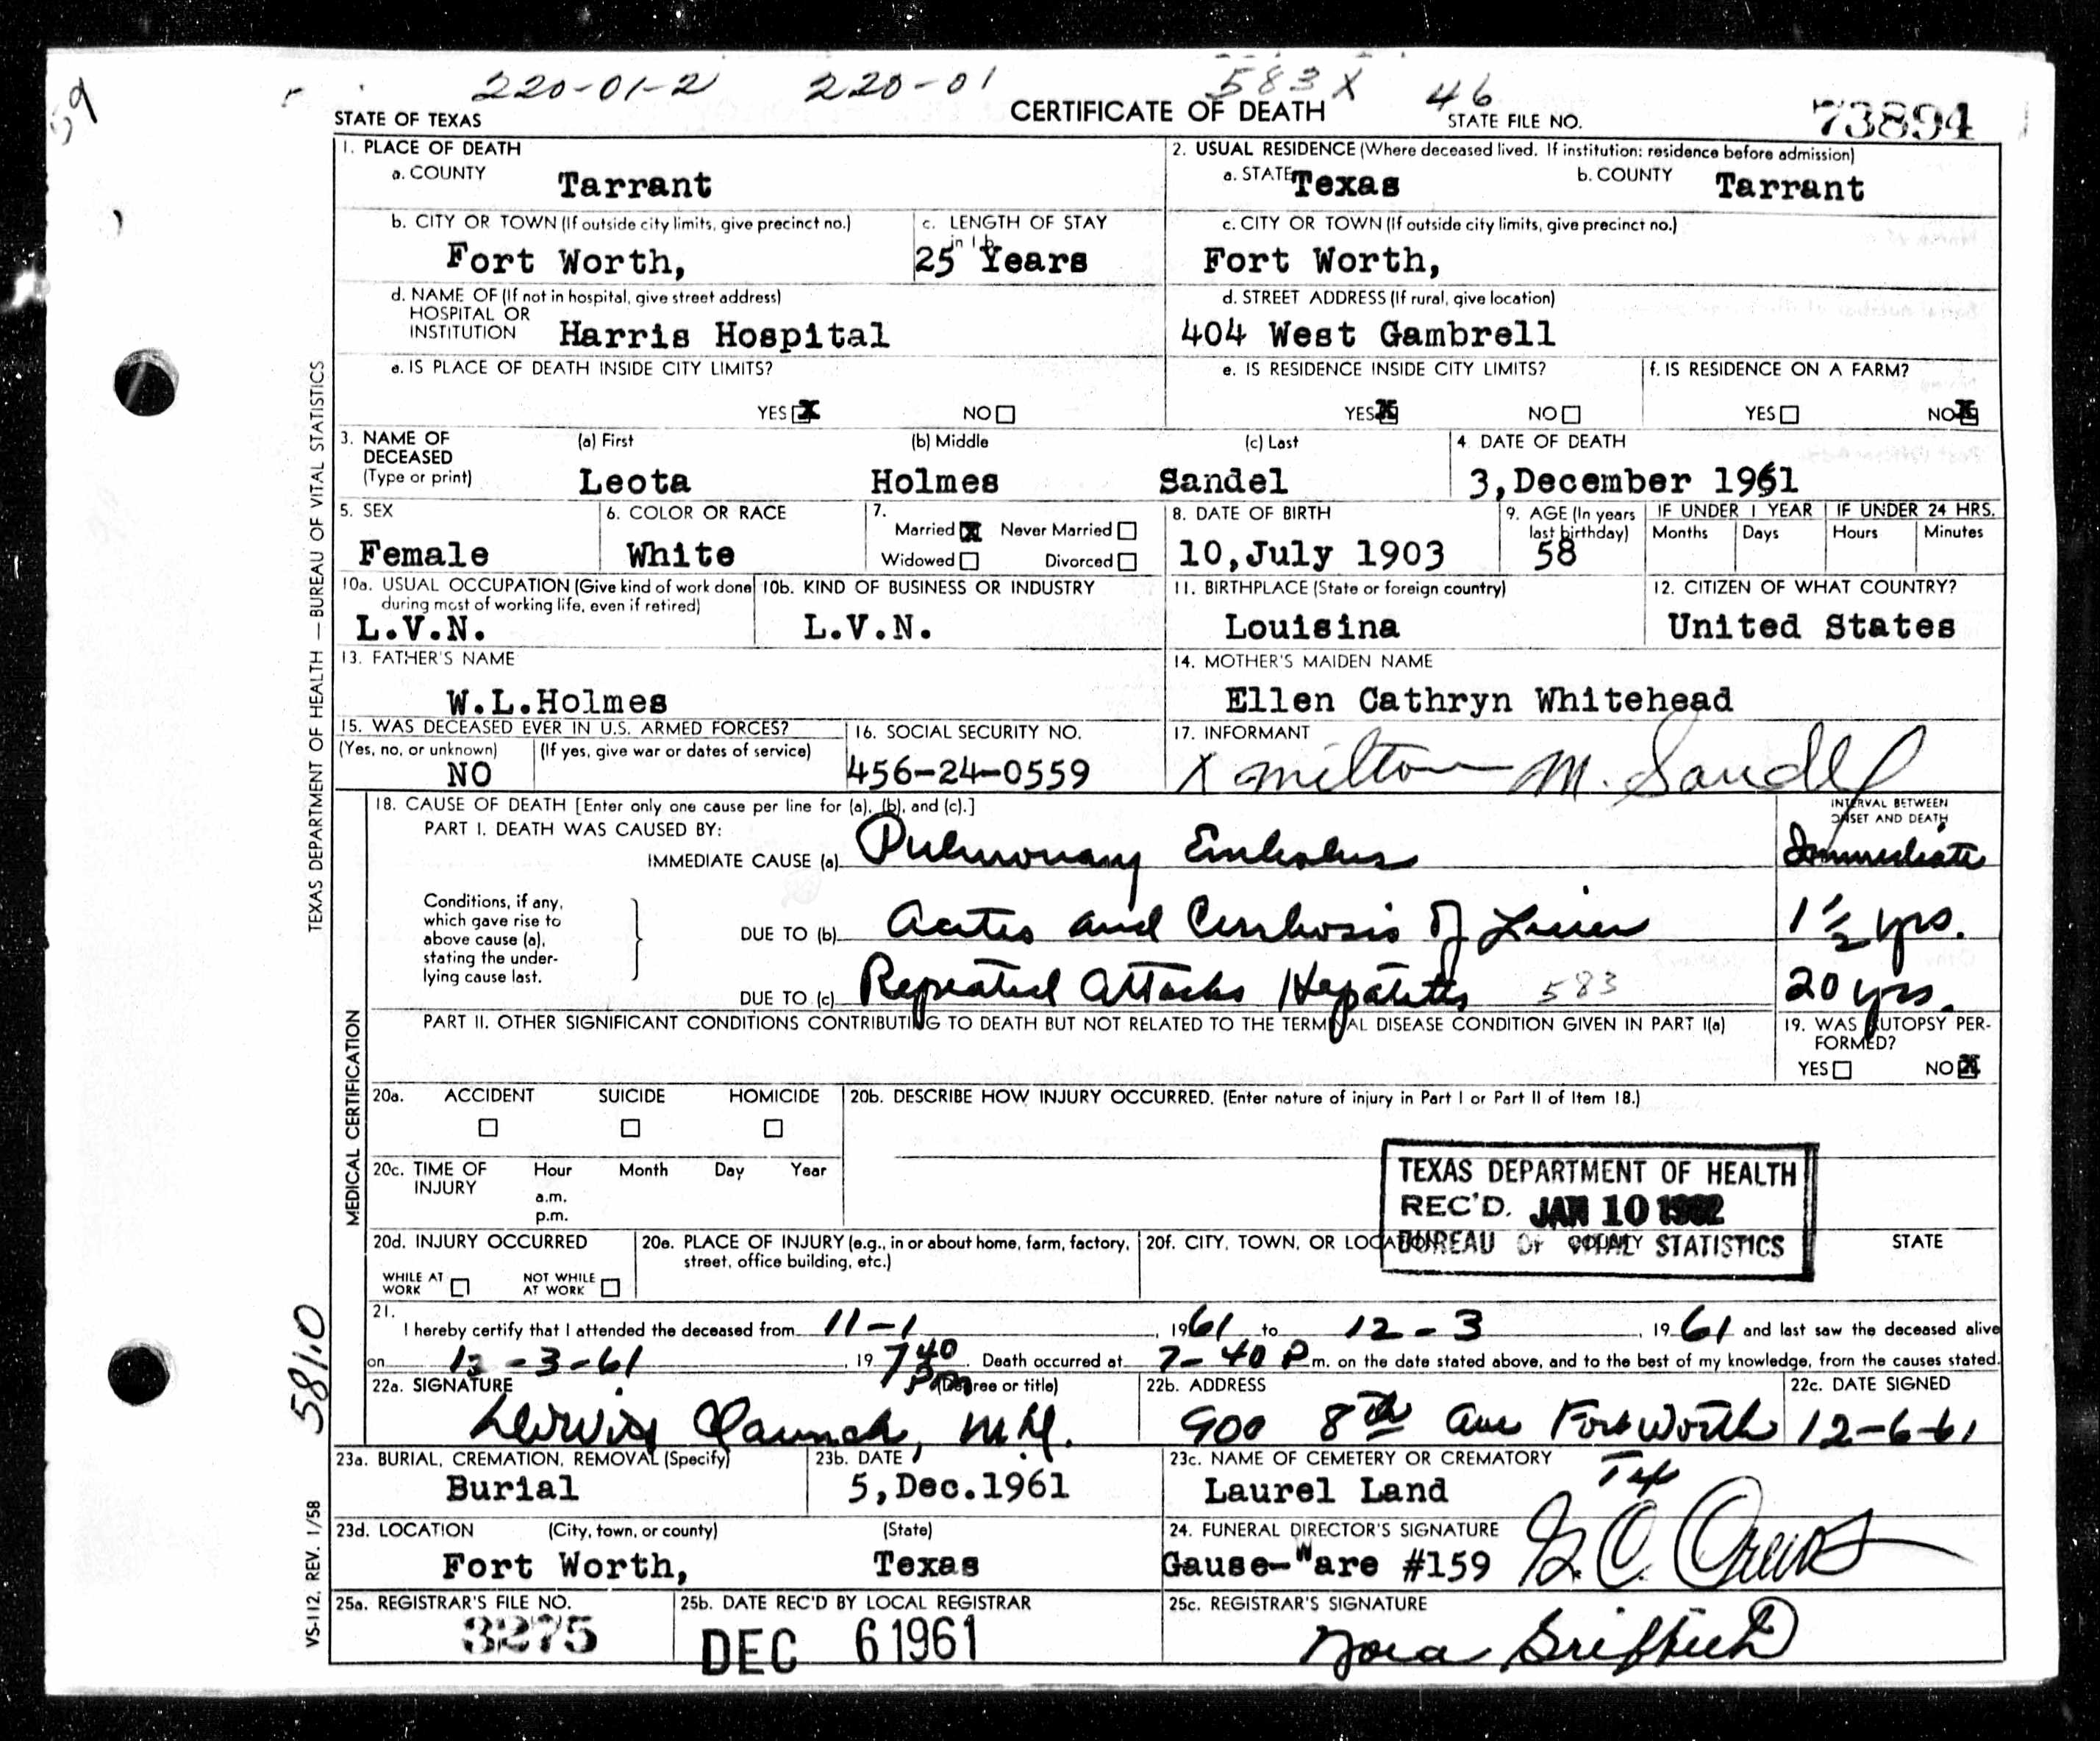 59
220-01-2 220-01 583X 46
STATE OF TEXAS CERTIFICATE OF DEATH STATE FILE NO. 73894
1. PLACE OF DEATH
a. COUNTY Tarrant
2. USUAL RESIDENCE (Where deceased lived. If institution: residence before admission)
a. STATE Texas b. COUNTY Tarrant
b. CITY OR TOWN (If outside city limits, give precinct no.)
Fort Worth,
c. LENGTH OF STAY
in 1 b
25 Years
c. CITY OR TOWN (If outside city limits, give precinct no.)
Fort Worth,
d. NAME OF (If not in hospital, give street address)
HOSPITAL OR
INSTITUTION Harris Hospital
d. STREET ADDRESS (If rural, give location)
404 West Gambrell
e. IS PLACE OF DEATH INSIDE CITY LIMITS?
YES X NO
e. IS RESIDENCE INSIDE CITY LIMITS?
YES X NO
f. IS RESIDENCE ON A FARM?
YES NO X
3. NAME OF DECEASED (Type or print)
(a) First (b) Middle (c) Last
Leota Holmes Sandel
4 DATE OF DEATH
3,December 1961
5. SEX
Female
6. COLOR OR RACE
White
7.
Married X Never Married
Widowed Divorced
8. DATE OF BIRTH
10,July 1903
9. AGE (In years
last birthday)
58
IF UNDER 1 YEAR IF UNDER 24 HRS.
Months Days Hours Minutes
10a. USUAL OCCUPATION (Give kind of work done
during most of working life, even if retired)
L.V.N.
10b. KIND OF BUSINESS OR INDUSTRY
L.V.N.
11. BIRTHPLACE (State or foreign country)
Louisina
12. CITIZEN OF WHAT COUNTRY?
United States
13. FATHER'S NAME
W.L.Holmes
14. MOTHER'S MAIDEN NAME
Ellen Cathryn Whitehead
15. WAS DECEASED EVER IN U.S. ARMED FORCES?
(Yes, no, or unknown) (If yes, give war or dates of service)
NO
16. SOCIAL SECURITY NO.
456-24-0559
17. INFORMANT
X Milton M. Sandel
18. CAUSE OF DEATH [Enter only one cause per line for (a), (b), and (c).]
INTERVAL BETWEEN
ONSET AND DEATH
PART I. DEATH WAS CAUSED BY:
IMMEDIATE CAUSE (a) Pulmonary Embolus Immediate
Conditions, if any,
which gave rise to
above cause (a),
stating the under-
lying cause last.
DUE TO (b) Acites and Cirrhosis of Liver 1 1/2 yrs.
DUE TO (c) Repeated Attacks Hepatitis 583 20 yrs.
PART II. OTHER SIGNIFICANT CONDITIONS CONTRIBUTING TO DEATH BUT NOT RELATED TO THE TERMINAL DISEASE CONDITION GIVEN IN PART I(a)
19. WAS AUTOPSY PER-
FORMED?
YES NO X
20a. ACCIDENT SUICIDE HOMICIDE
20b. DESCRIBE HOW INJURY OCCURRED. (Enter nature of injury in Part I or Part II of Item 18.)
20c. TIME OF INJURY Hour Month Day Year
a.m.
p.m.
TEXAS DEPARTMENT OF HEALTH
REC'D. JAN 10 1962
BUREAU OF VITAL STATISTICS
20d. INJURY OCCURRED
WHILE AT WORK NOT WHILE AT WORK
20e. PLACE OF INJURY (e.g., in or about home, farm, factory,
street, office building, etc.)
20f. CITY, TOWN, OR LOCATION COUNTY STATE
21.
I hereby certify that I attended the deceased from 11-1, 1961 to 12-3, 1961 and last saw the deceased alive
on 12-3-61, 19 7 40 Pm. Death occurred at 7-40 P m. on the date stated above, and to the best of my knowledge, from the causes stated.
22a. SIGNATURE (Degree or title)
M.D.
22b. ADDRESS
900 8th Ave Fort Worth Tex
22c. DATE SIGNED
12-6-61
23a. BURIAL, CREMATION, REMOVAL (Specify)
Burial
23b. DATE
5,Dec.1961
23c. NAME OF CEMETERY OR CREMATORY
Laurel Land
23d. LOCATION (City, town, or county) (State)
Fort Worth, Texas
24. FUNERAL DIRECTOR'S SIGNATURE
Gause-Ware #159
25a. REGISTRAR'S FILE NO.
3275
25b. DATE REC'D BY LOCAL REGISTRAR
DEC 6 1961
25c. REGISTRAR'S SIGNATURE
Nora Griffith
TEXAS DEPARTMENT OF HEALTH — BUREAU OF VITAL STATISTICS
MEDICAL CERTIFICATION
581.0
VS-112, REV. 1/58